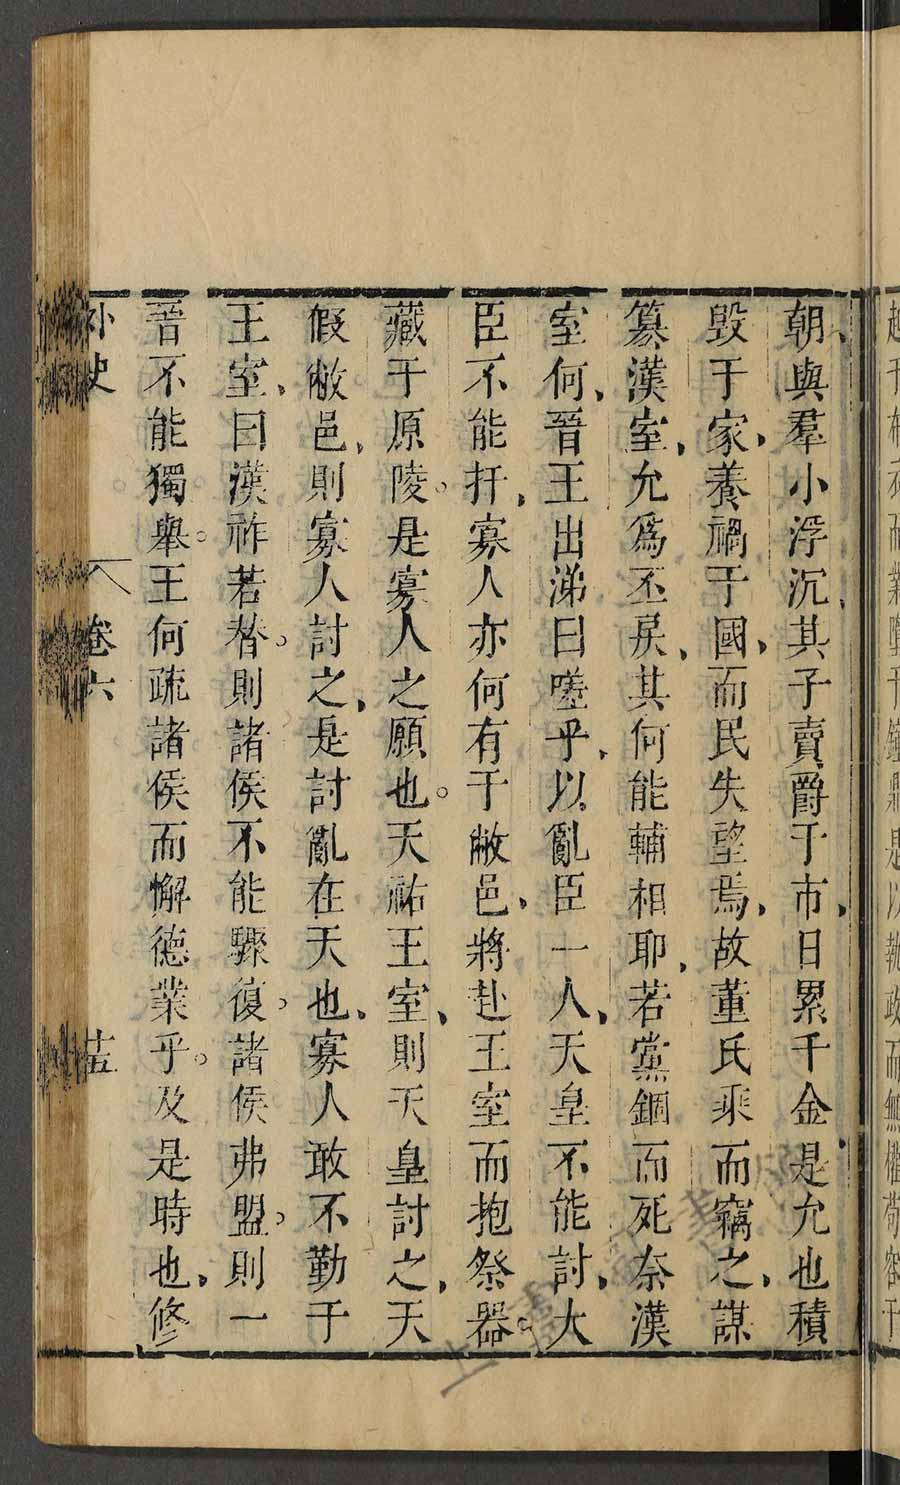 朝與羣小浮沉其子賣爵于市日累千金是允也積
毀于家養禍于國而民失望焉故董氏乘而竊之謀
篡漢室允爲丕戾其何能輔相耶若黨錮而死奈漢
室何晉王出涕曰嗟乎以亂臣一人天皇不能討大
臣不能扞寡人亦何有于敝邑將赴王室而抱祭器
藏于原陵是寡人之願也天祐王室則天皇討之天
假敝邑則寡人討之是討亂在天也寡人敢不勤于
王室曰漢祚若替則諸侯不能驟復諸侯弗盟則一
晉不能獨舉王何疏諸侯而懈德業乎及是時也修
外史 卷六 十五